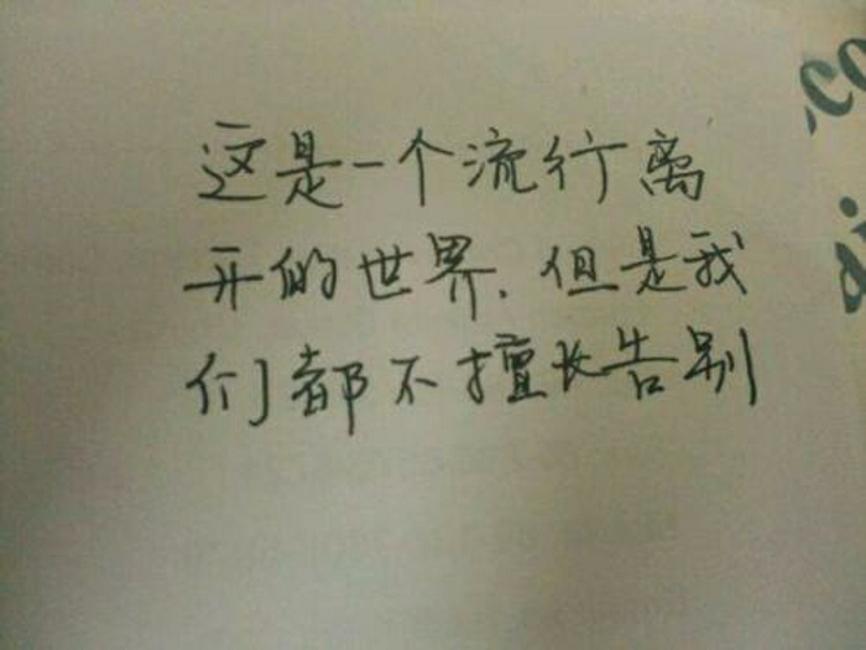 这是一个流行离
开的世界.但是我
们都不擅长告别
.co